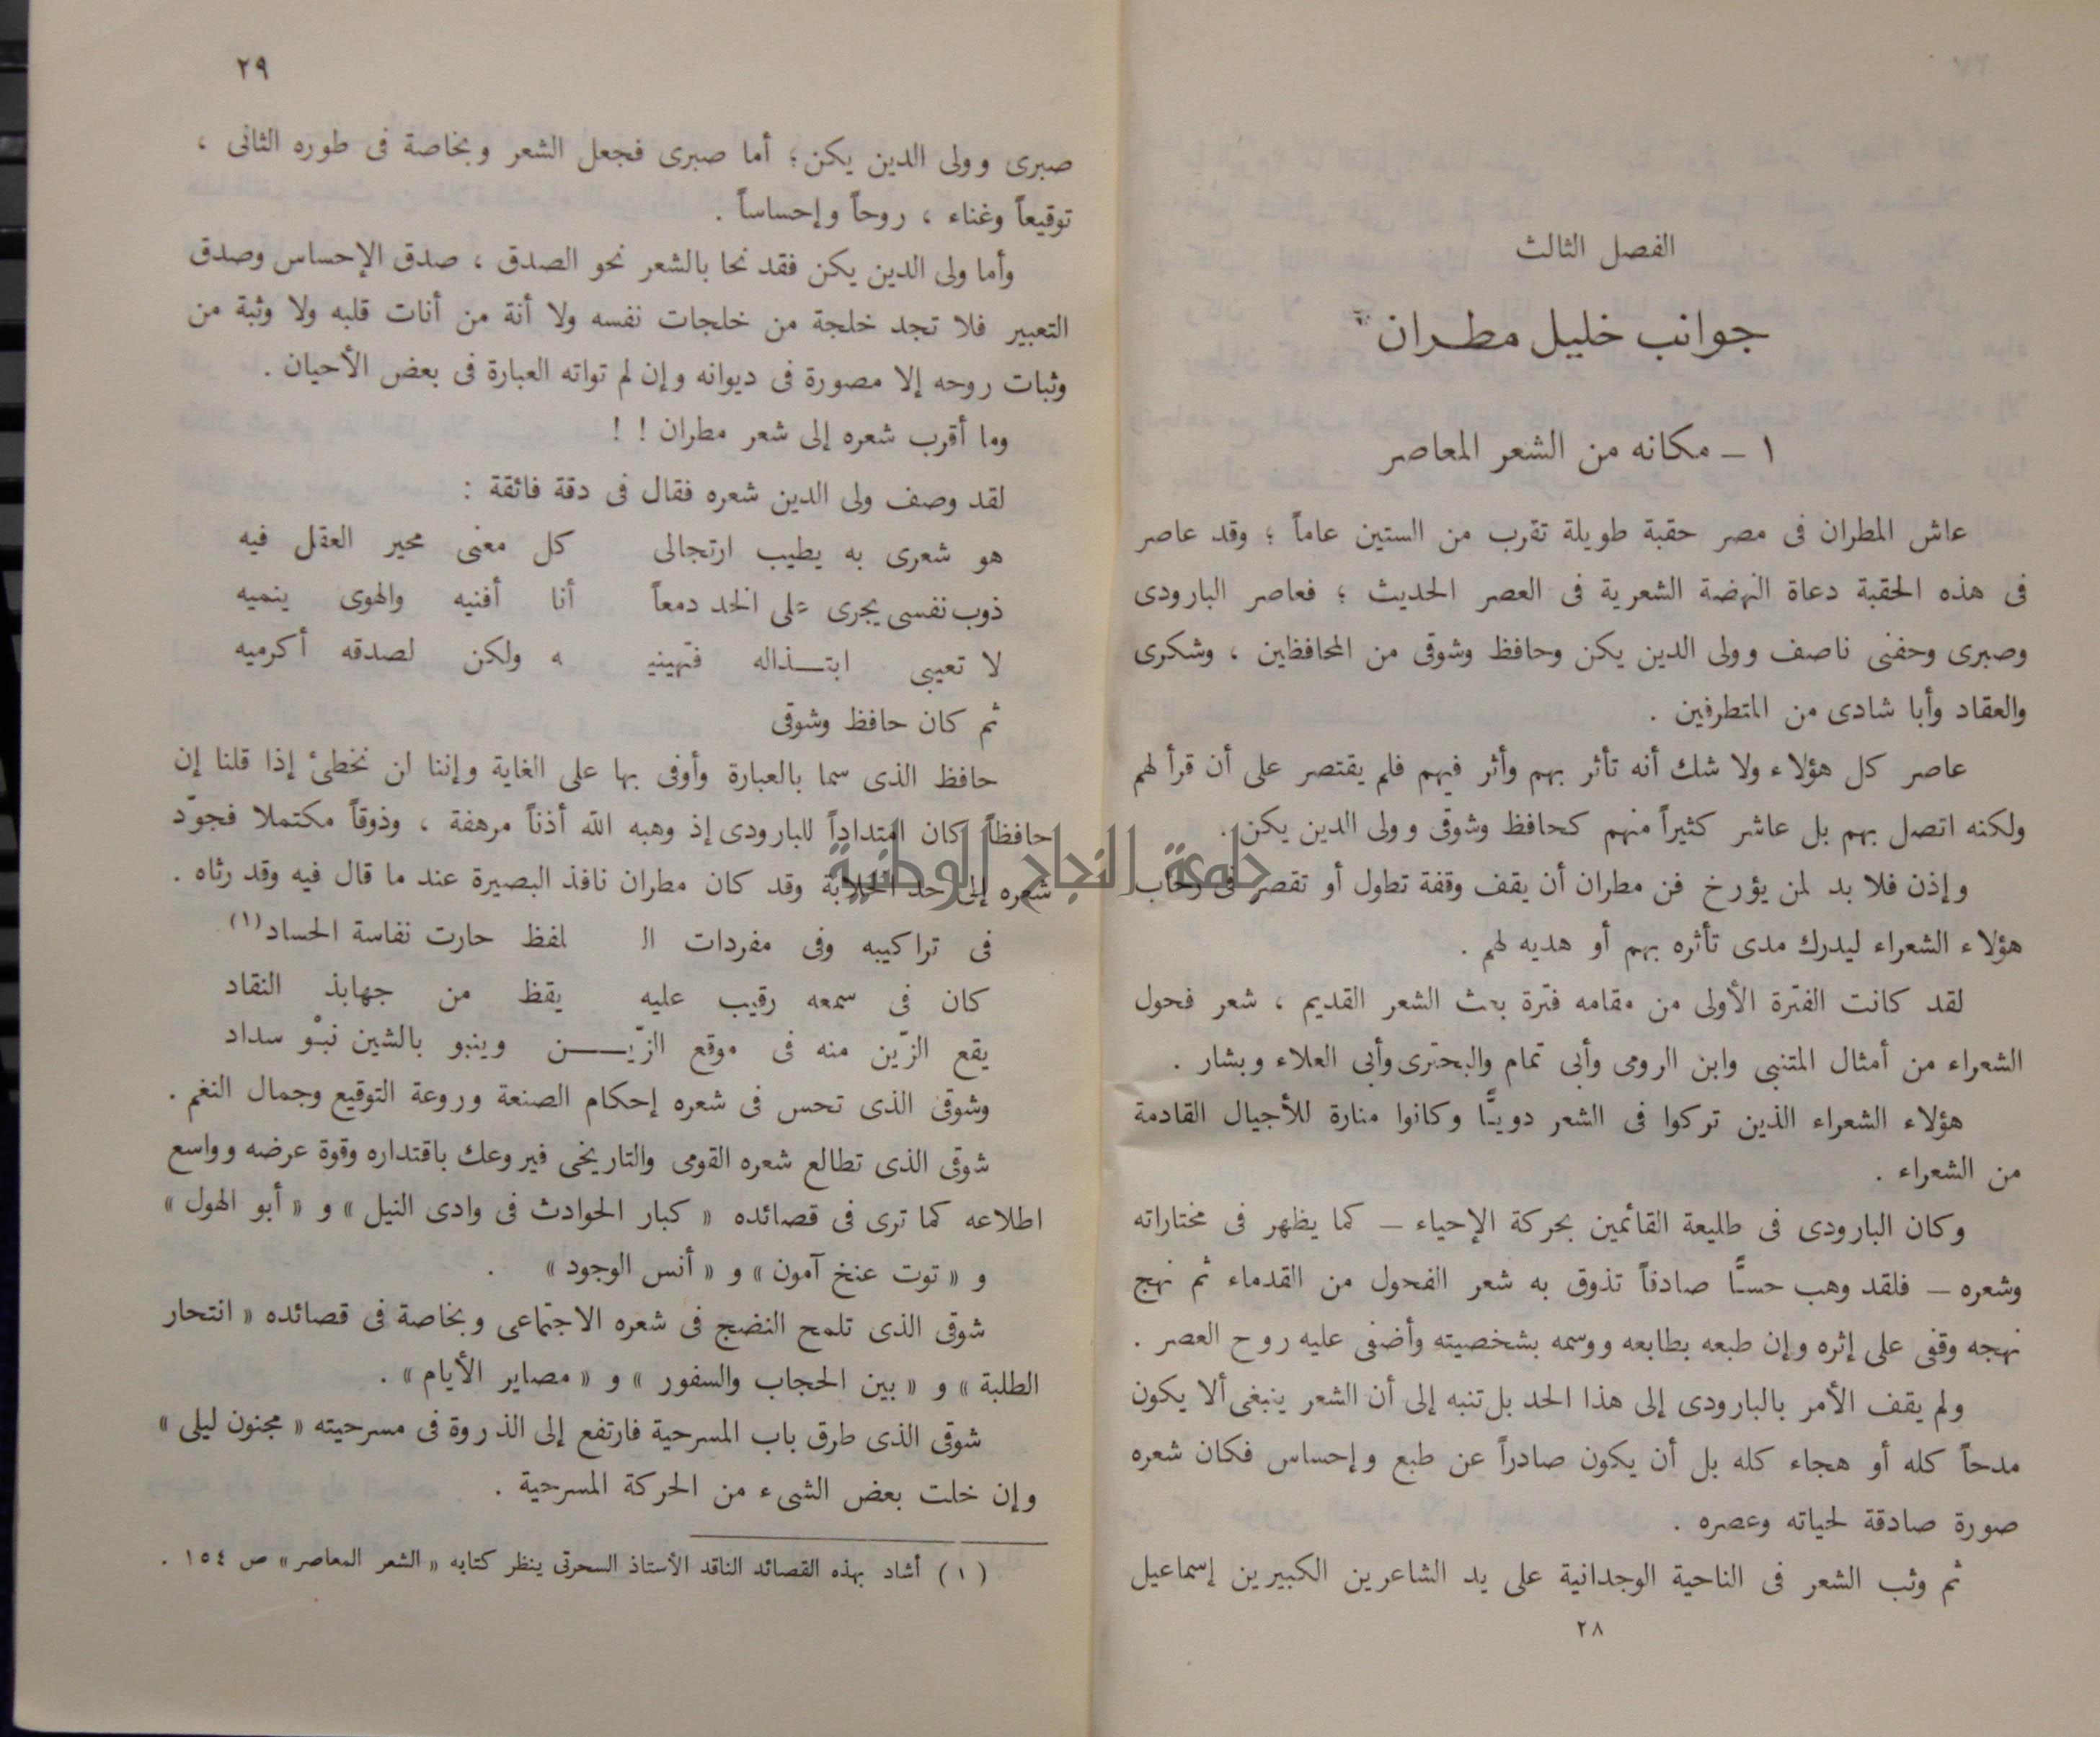 الفصل الثالث
جوانب خليل مطران
١ – مكانه من الشعر المعاصر
عاش المطران فى مصر حقبة طويلة تقرب من الستين عاماً ؛ وقد عاصر
فى هذه الحقبة دعاة النهضة الشعرية فى العصر الحديث ؛ فعاصر البارودى
وصبرى وحفنى ناصف وولى الدين يكن وحافظ وشوقى من المحافظين ، وشكرى
والعقاد وأبا شادى من المتطرفين .
عاصر كل هؤلاء ولا شك أنه تأثر بهم وأثر فيهم فلم يقتصر على أن قرأ لهم
ولكنه اتصل بهم بل عاشر كثيراً منهم كحافظ وشوقى وولى الدين يكن .
وإذن فلا بد لمن يؤرخ فن مطران أن يقف وقفة تطول أو تقصر فى رحاب
هؤلاء الشعراء ليدرك مدى تأثره بهم أو هديه لهم .
لقد كانت الفترة الأولى من مقامه فترة بعث الشعر القديم ، شعر فحول
الشعراء من أمثال المتنبى وابن الرومى وأبى تمام والبحترى وأبى العلاء وبشار .
هؤلاء الشعراء الذين تركوا فى الشعر دويًّا وكانوا منارة للأجيال القادمة
من الشعراء .
وكان البارودى فى طليعة القائمين بحركة الإحياء – كما يظهر فى مختاراته
وشعره – فلقد وهب حسًّا صادفاً تذوق به شعر الفحول من القدماء ثم نهج
نهجه وقفى على إثره وإن طبعه بطابعه ووسمه بشخصيته وأضفى عليه روح العصر .
ولم يقف الأمر بالبارودى إلى هذا الحد بل تنبه إلى أن الشعر ينبغى ألا يكون
مدحاً كله أو هجاء كله بل أن يكون صادراً عن طبع وإحساس فكان شعره
صورة صادقة لحياته وعصره .
ثم وثب الشعر فى الناحية الوجدانية على يد الشاعرين الكبيرين إسماعيل
٢٨
٢٩
صبرى وولى الدين يكن ؛ أما صبرى فجعل الشعر وبخاصة فى طوره الثانى ،
توقيعاً وغناء ، روحاً وإحساساً .
وأما ولى الدين يكن فقد نحا بالشعر نحو الصدق ، صدق الإحساس وصدق
التعبير فلا تجد خلجة من خلجات نفسه ولا أنة من أنات قلبه ولا وثبة من
وثبات روحه إلا مصورة فى ديوانه وإن لم تواته العبارة فى بعض الأحيان .
وما أقرب شعره إلى شعر مطران ! !
لقد وصف ولى الدين شعره فقال فى دقة فائقة :
هو شعرى به يطيب ارتجالى كل معنى محير العقل فيه
ذوب نفسى يجرى على الخد دمعاً أنا أفنيه والهوى ينميه
لا تعيبى ابتـذاله فتهينيـ ـه ولكن لصدقه أكرميه
ثم كان حافظ وشوقى
حافظ الذى سما بالعبارة وأوفى بها على الغاية وإننا لن نخطئ إذا قلنا إن
حافظاً كان امتداداً للبارودى إذ وهبه الله أذناً مرهفة ، وذوقاً مكتملا فجوّد
شعره إلى حد الخلابة وقد كان مطران نافذ البصيرة عند ما قال فيه وقد رثاه .
فى تراكيبه وفى مفردات الـ لمفظ حارت نفاسة الحساد (١)
كان فى سمعه رقيب عليه يقظ من جهابذ النقاد
يقع الزّين منه فى موقع الزّيـــن وينبو بالشين نبْو سداد
وشوقى الذى تحس فى شعره إحكام الصنعة وروعة التوقيع وجمال النغم .
شوقى الذى تطالع شعره القومى والتاريخى فيروعك باقتداره وقوة عرضه وواسع
اطلاعه كما ترى فى قصائده « كبار الحوادث فى وادى النيل » و « أبو الهول »
و « توت عنخ آمون » و « أنس الوجود » .
شوقى الذى تلمح النضج فى شعره الاجتماعى وبخاصة فى قصائده « انتحار
الطلبة » و « بين الحجاب والسفور » و « مصاير الأيام » .
شوقى الذى طرق باب المسرحية فارتفع إلى الذروة فى مسرحيته « مجنون ليلى »
وإن خلت بعض الشىء من الحركة المسرحية .
( ١ ) أشاد بهذه القصائد الناقد الأستاذ السحرتى ينظر كتابه « الشعر المعاصر » ص ١٥٤ .
جامعة النجاح الوطنية